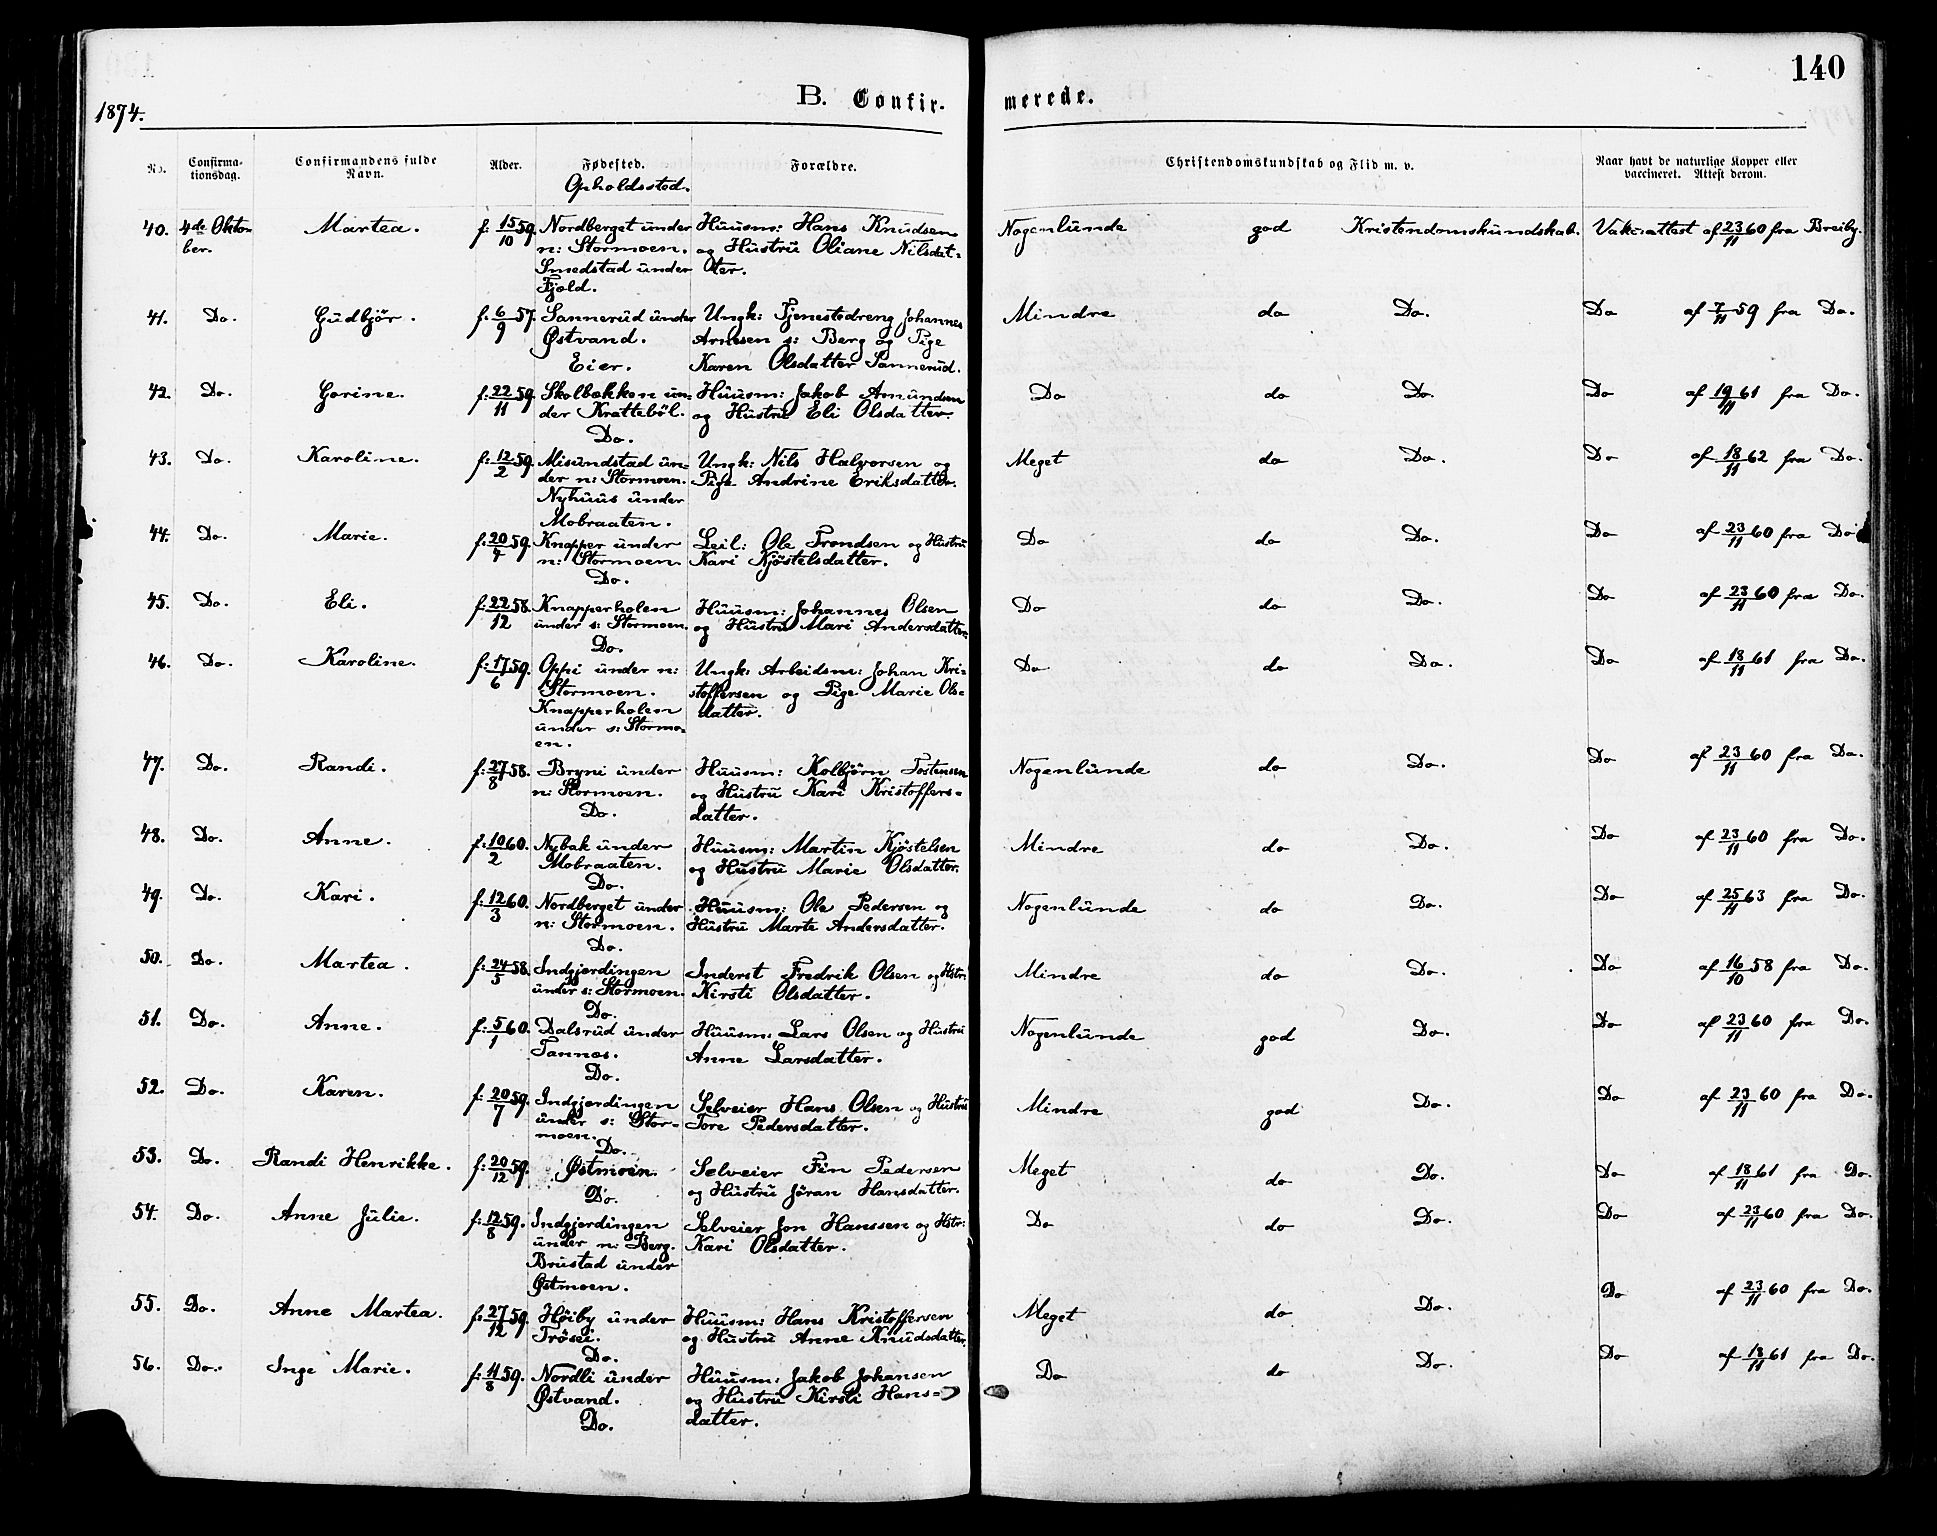 140
1874.
B. Confir- merede.
No. Confirma-tionsdag. Confirmandens fulde Navn. Alder. Fødested. Opholdssted. Forældre. Christendomskundskab og Flid m. v. Naar havt de naturlige Kopper eller vaccineret. Attest derom.
40. 4de Okto- Martea. f. 15/10 59. Nordberget under Huusm: Hans Knudsen Nogenlunde god Kristendomskundskab. Vakc:attest af 23/11 60 fra Breiby.
ber. n: Stormoen. og Hustru Oliane Nilsdat-
Smedstad under ter.
Fjeld.
41. Do. Gudbjør. f: 6/9 57. Sannerud under Ungk: Tjenestedreng Johannes Mindre do Do. Do af 7/11 59 fra Do.
Østvand. Arnesen s: Berg og Pige
Eier. Karen Olsdatter Sannerud.
42. Do. Gorine. f: 22/11 59. Skolbækken un- Huusm: Jakob Amundsen Do do Do. Do af 19/11 61 fra Do.
der Krattebøl. og Hustru Eli Olsdatter.
Do.
43. Do. Karoline. f: 12/2 59. Misundstad un- Ungk: Nils Halvorsen og Meget do Do. Do af 18/11 62 fra Do.
der n: Stormoen. Pige Andrine Eriksdatter.
Nyhuus under
Mobraaten.
44. Do. Marie. f. 20/4 59. Knapper under Leil: Ole Trondsen og Hustru Do do Do. Do af 23/11 60 fra Do
n: Stormoen. Kari Kjøstelsdatter.
Do.
45. Do. Eli. f: 22/12 58. Knapperholen Huusm: Johannes Olsen Do do Do. Do af 23/11 60 fra Do.
under s: Stormoen. og Hustru Mari Andersdatter.
Do.
46. Do. Karoline. f: 17/6 59. Oppi under n: Ungk: Arbeidsm: Johan Kri- Do do Do. Do af 18/11 61 fra Do.
Stormoen. stoffersen og Pige Marie Ols-
Knapperholen datter.
under s: Stormo-
en.
47. Do. Randi. f: 27/8 58. Bryni under Huusm: Kolbjørn Tostensen Nogenlunde do Do. Do af 23/11 60 fra Do.
n: Stormoen. og Hustru Kari Kristoffers-
Do. datter.
48. Do. Anne. f: 10/2 60. Nybak under Huusm: Martin Kjøstelsen Mindre do Do. Do af 23/11 60 fra Do.
Mobraaten. og Hustru Marie Olsdatter.
Do.
49. Do. Kari. f: 12/3 60. Nordberget under Huusm: Ole Pedersen og Nogenlunde do Do. Do af 25/11 63 fra Do.
n: Stormoen. Hustru Marte Andersdatter.
Do.
50. Do. Martea. f: 24/5 58. Indgjerdingen Inderst Fredrik Olsen og Hstr: Mindre do Do. Do af 16/10 58 fra Do.
under s: Stormoen. Kirsti Olsdatter.
Do.
51. Do. Anne. f: 5/1 60. Dalsrud under Huusm: Lars Olsen og Hustru Nogenlunde god Do. Do af 23/11 60 fra Do.
Tannæs. Anne Larsdatter.
Do.
52. Do. Karen. f: 20/7 59. Indgjerdingen Selveier Hans Olsen og Hustru Mindre god Do. Do af 23/11 60 fra Do.
under s: Stor- Tore Pedersdatter.
moen.
Do.
53. Do. Randi Henrikke. f: 20/12 59. Østmoen. Selveier Fin Pedersen Meget do Do. Do af 18/11 61 fra Do.
Do. og Hustru Jøran Hansdatter.
54. Do. Anne Julie. f: 12/8 59. Indgjerdingen Selveier Jon Hanssen og Hstr: Do do Do. Do af 23/11 60 fra Do.
under n: Berg. Kari Olsdatter.
Brustad under
Østmoen.
55. Do. Anne Martea. f: 27/12 59. Høiby under Huusm: Hans Kristoffersen Meget do Do. Do af 23/11 60 fra Do.
Trøsei. og Hustru Anne Knudsdatter.
Do.
56. Do. Inge Marie. f: 11/8 59. Nordli under Huusm: Jakob Johansen Do do Do. Do af 18/11 61 fra Do.
Østvand. og Hustru Kirsti Hans-
Do. datter.